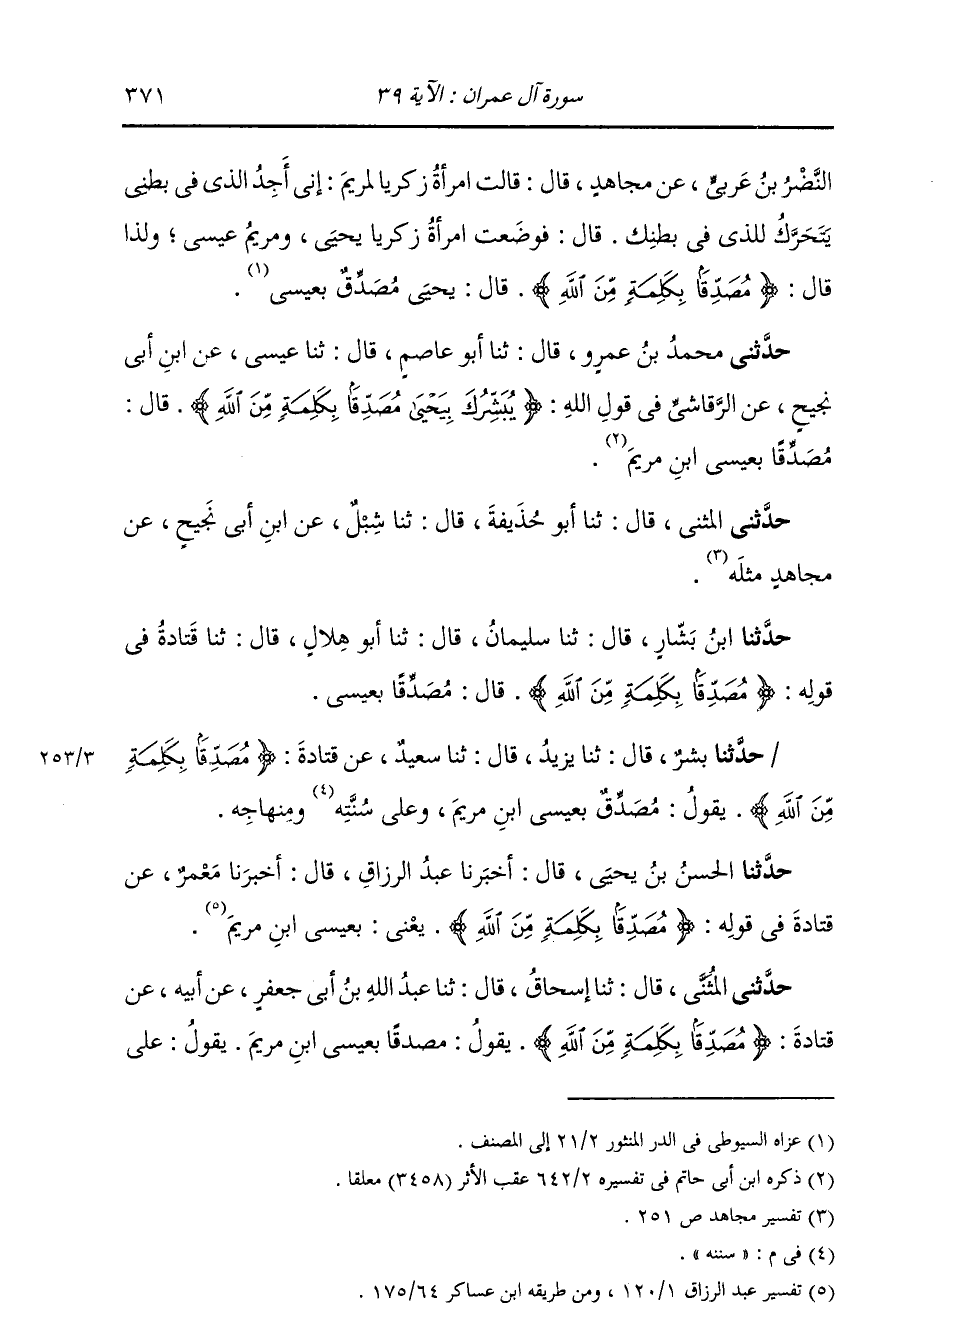 سورة آل عمران : الآية ٣٩ ٣٧١
النَّضْرُ بنُ عَربىٍّ ، عن مجاهدٍ ، قال : قالت امرأةُ زكريا لمريمَ : إنى أَجِدُ الذى فى بطنِى
يَتَحَرَّكُ للذى فى بطنِك . قال : فوضَعت امرأةُ زكريا يحيَى ، ومريمُ عيسى ؛ ولذا
قال : ﴿ مُصَدِّقًا بِكَلِمَةٍ مِّنَ ٱللَّهِ ﴾ . قال : يحيَى مُصَدِّقٌ بعيسى(١) .
حدَّثنى محمدُ بنُ عمرٍو ، قال : ثنا أبو عاصمٍ ، قال : ثنا عيسى ، عن ابنِ أبى
نجيحٍ ، عن الرَّقاشىِّ فى قولِ اللهِ : ﴿ يُبَشِّرُكَ بِيَحْيَىٰ مُصَدِّقًا بِكَلِمَةٍ مِّنَ ٱللَّهِ ﴾ . قال :
مُصَدِّقًا بعيسى ابنِ مريمَ(٢) .
حدَّثنى المثنى ، قال : ثنا أبو حُذَيفةَ ، قال : ثنا شِبْلٌ ، عن ابنِ أبى نَجيحٍ ، عن
مجاهدٍ مثلَه(٣) .
حدَّثنا ابنُ بَشّارٍ ، قال : ثنا سليمانُ ، قال : ثنا أبو هِلالٍ ، قال : ثنا قَتادةُ فى
قولِه : ﴿ مُصَدِّقًا بِكَلِمَةٍ مِّنَ ٱللَّهِ ﴾ . قال : مُصَدِّقًا بعيسى .
/ حدَّثنا بشرٌ ، قال : ثنا يزيدُ ، قال : ثنا سعيدٌ ، عن قتادةَ : ﴿ مُصَدِّقًا بِكَلِمَةٍ ٢٥٣/٣
مِّنَ ٱللَّهِ ﴾ . يقولُ : مُصَدِّقٌ بعيسى ابنِ مريمَ ، وعلى سُنَّتِه(٤) ومِنهاجِه .
حدَّثنا الحسنُ بنُ يحيَى ، قال : أخبَرنا عبدُ الرزاقِ ، قال : أخبرَنا مَعْمرٌ ، عن
قتادةَ فى قولِه : ﴿ مُصَدِّقًا بِكَلِمَةٍ مِّنَ ٱللَّهِ ﴾ . يعْنى : بعيسى ابنِ مريمَ(٥) .
حدَّثنى المُثَنَّى ، قال : ثنا إسحاقُ ، قال : ثنا عبدُ اللهِ بنُ أبى جعفرٍ ، عن أبيه ، عن
قتادةَ : ﴿ مُصَدِّقًا بِكَلِمَةٍ مِّنَ ٱللَّهِ ﴾ . يقولُ : مصدقًا بعيسى ابنِ مريمَ . يقولُ : على
(١) عزاه السيوطى فى الدر المنثور ٢١/٢ إلى المصنف .
(٢) ذكره ابن أبى حاتم فى تفسيره ٦٤٢/٢ عقب الأثر (٣٤٥٨) معلقا .
(٣) تفسير مجاهد ص ٢٥١ .
(٤) فى م : « سننه » .
(٥) تفسير عبد الرزاق ١٢٠/١ ، ومن طريقه ابن عساكر ١٧٥/٦٤ .